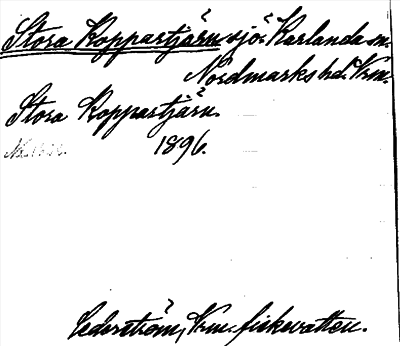 Stora Koppartjärn sjö: Karlanda sn.
Nordmarks hd. Vrm.
Stora Koppartjärn.
1896.
Cederström, Vrm. fiskevatten.